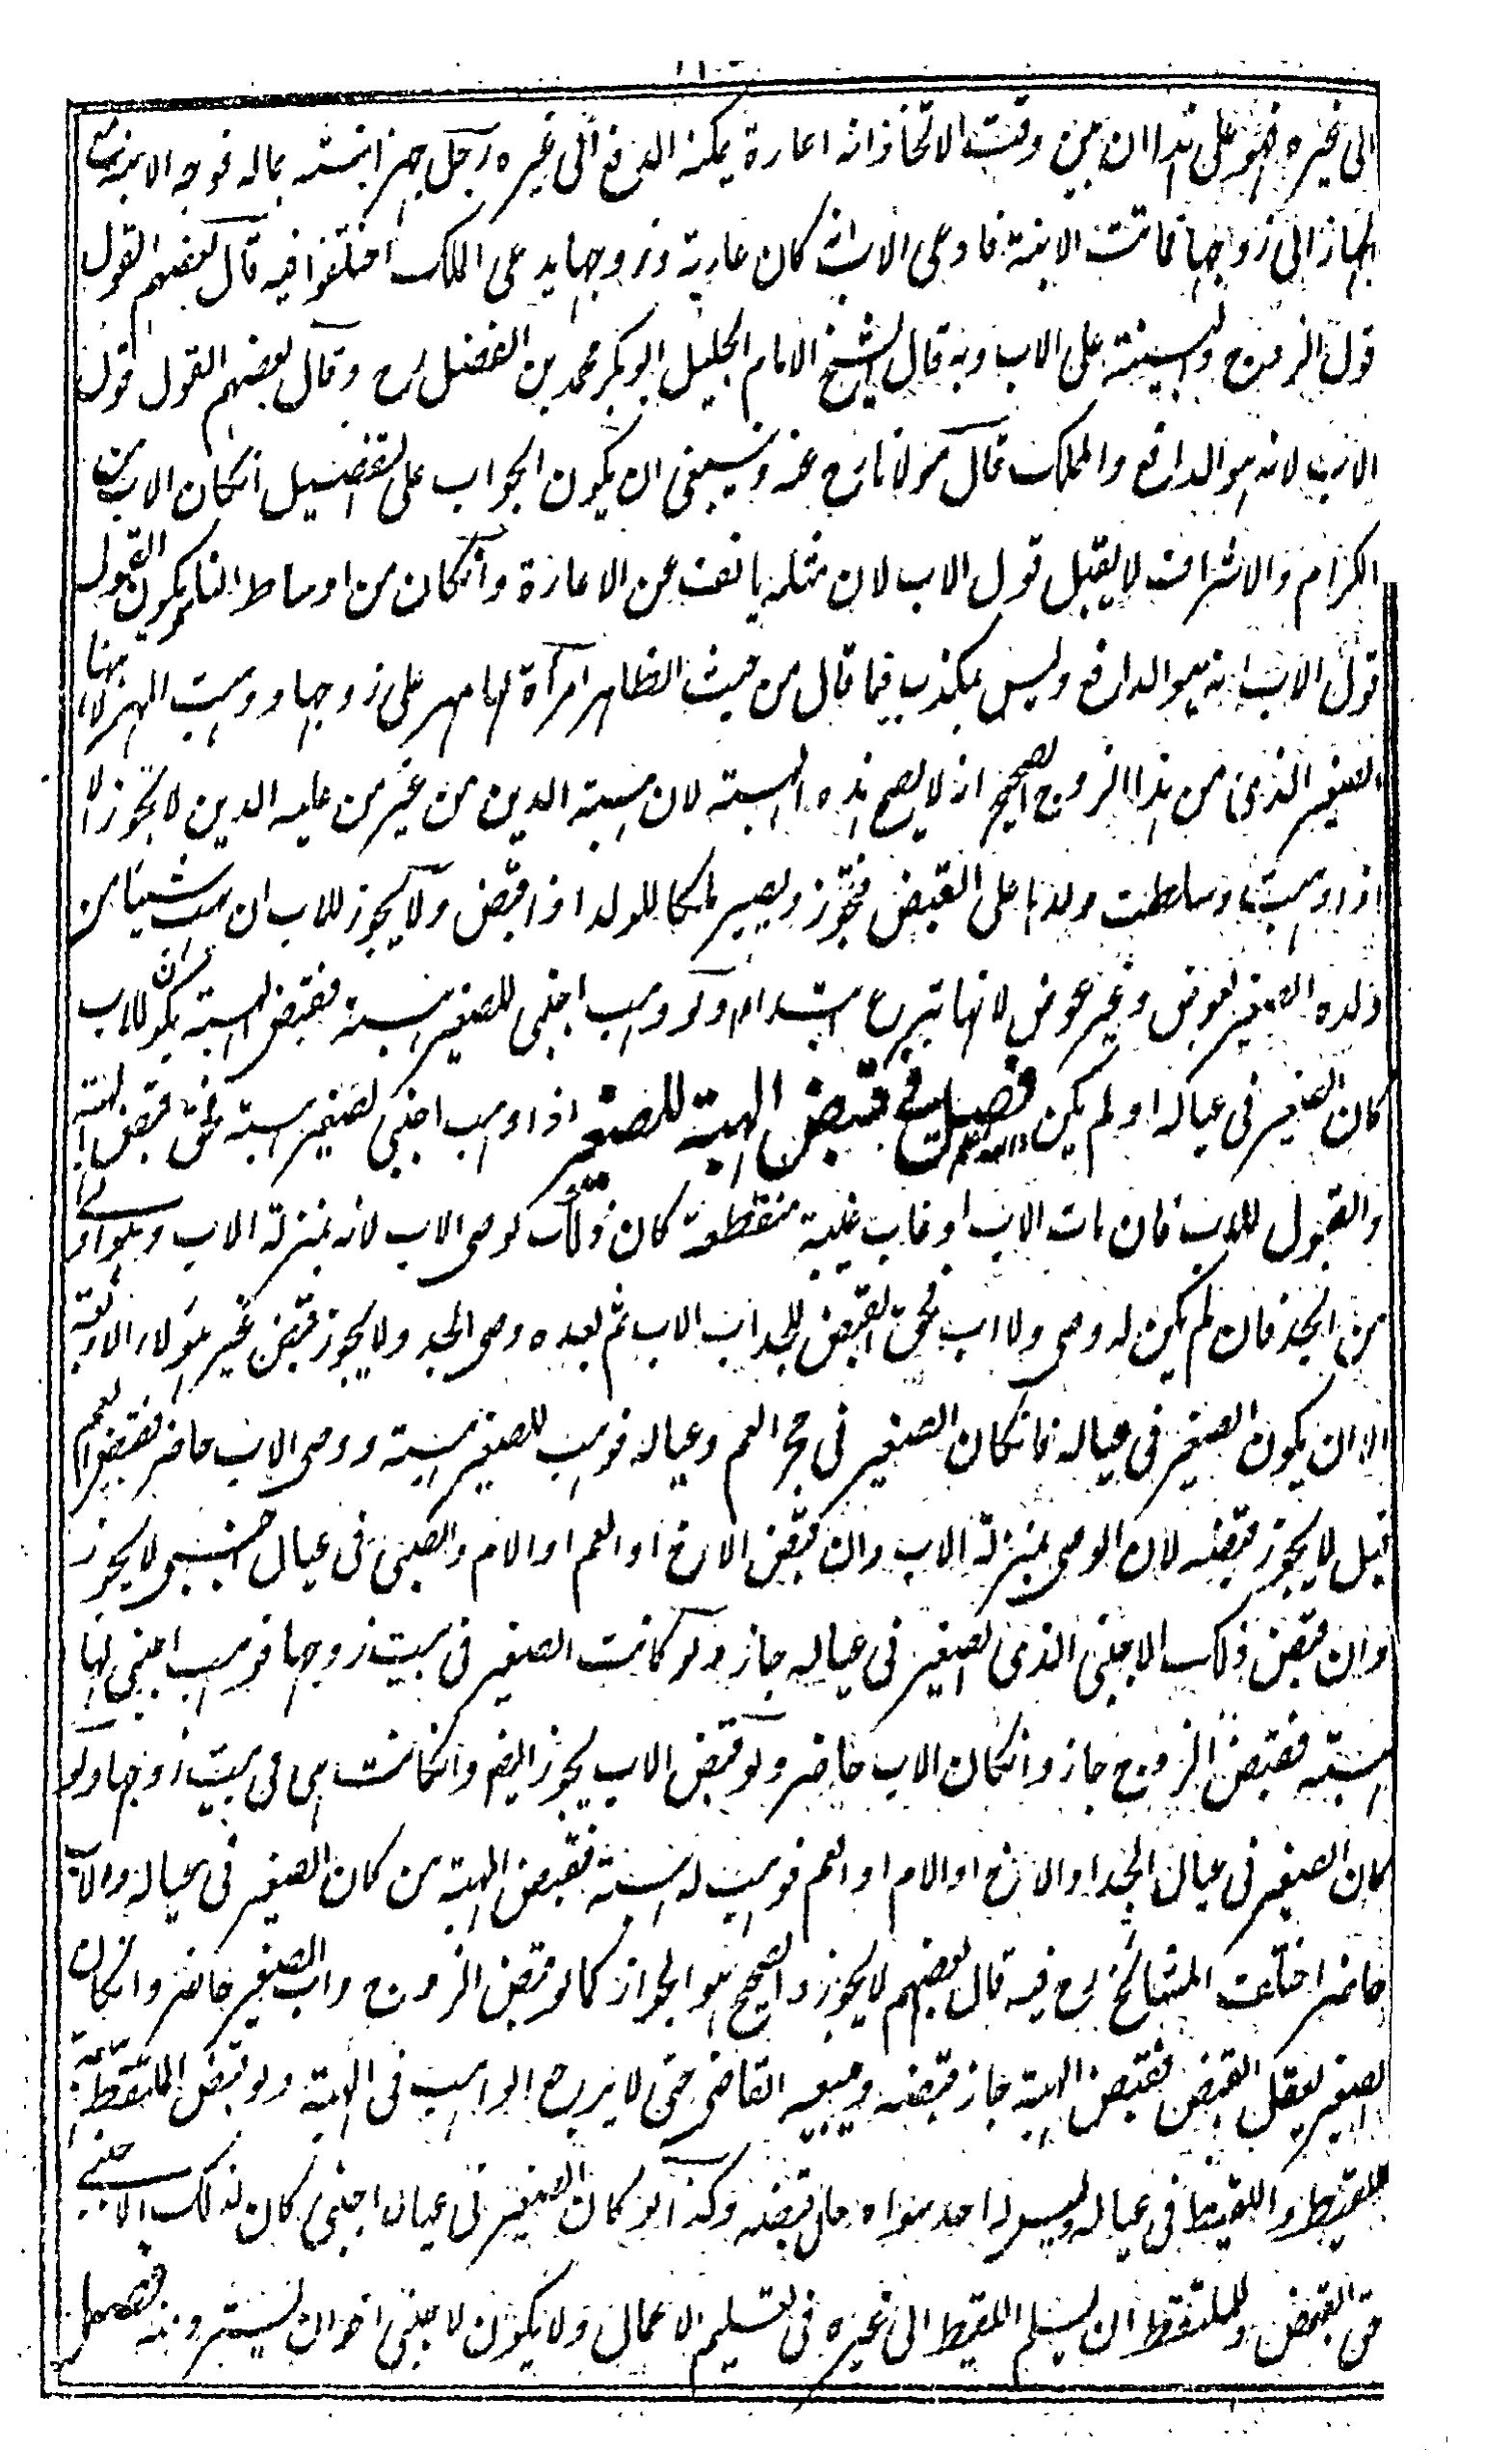 الى غيره فهو على هذا ان بين وقت الاتخاذ انه اعارة يمكنه الدفع الى غيره رجل جهز ابنته بماله فوجه الابنة مع
الجهاز الى زوجها فماتت الابنة فادعى الاب انه كان عارية وزوجها يدعى الملك اختلفوا فيه قال بعضهم القول
قول الزوج والبينة على الاب وبه قال الشيخ الامام الجليل ابو بكر محمد بن الفضل رح وقال بعضهم القول قول
الاب لانه هو الدافع والمملك قال مولانا رح عنه وينبغى ان يكون الجواب على التفصيل انكان الاب من
الكرام والاشراف لا يقبل قول الاب لان مثله يانف عن الاعارة وانكان من اوساط الناس يكون القول
قول الاب انه هو الدافع وليس بمكذب فيما قال من حيث الظاهر امرأة لها مهر على زوجها ووهبت المهر لابنها
الصغير الذى من هذا الزوج الصحيح انه لا يصح هذه الهبة لان هبة الدين من غير من عليه الدين لا تجوز الا
اذا وهبت وسلطت ولدها على القبض فتجوز ويصير ملكا للولد اذا قبض ولا يجوز للاب ان يهب شيئا من
ولده الصغير بعوض وغير عوض لانها تبرع ابتداء ولو وهب اجنبى للصغير هبة فقبض الهبة يكون للاب ان
كان الصغير فى عياله او لم يكن فصل فى قبض الهبة للصغير اذا وهب اجنبى لصغير هبة فحق قبض الهبة
والقبول للاب فان مات الاب او غاب غيبة منقطعة كان ذلك لوصى الاب لانه بمنزلة الاب وهو اولى
من الجد فان لم يكن له وصى ولا اب فحق القبض للجد اب الاب ثم بعده وصى الجد ولا يجوز قبض غير هؤلاء الاربعة
الا ان يكون الصغير فى عياله فانكان الصغير فى حجر العم وعياله فوهب للصغير هبة ووصى الاب حاضر فقبض العم
قيل لا يجوز قبضه لان الوصى بمنزلة الاب وان قبض الاخ او العم او الام والصبى فى عيال اجنبى لا يجوز
وان قبض ذلك الاجنبى الذى الصغير فى عياله جاز ولو كانت الصغير فى بيت زوجها فوهب اجنبى لها
هبة فقبض الزوج جاز وانكان الاب حاضر ولو قبض الاب يجوز ايضا وانكانت هى فى بيت زوجها ولو
كان الصغير فى عيال الجد او الاخ او الام او العم فوهب له هبة فقبض الهبة من كان الصغير فى عياله والاب
حاضر اختلف المشائخ رح فيه قال بعضهم لا يجوز والصحيح هو الجواز كما لو قبض الزوج واب الصغير حاضر وانكان
الصغير يعقل القبض فقبض الهبة جاز قبضه ويبيعه القاضى حتى لا يرجع الواهب فى الهبة ولو قبض الملتقط هبة
للقيط واللقيط فى عياله وليس له احد سواه جاز قبضه وكذا لو كان الصغير فى عيال اجنبى كان لذلك الاجنبى
حق القبض وللملتقط ان يسلم اللقيط الى غيره فى تسليم الاعمال ولا يكون لاجنبى اخر ان يسترده منه فصل